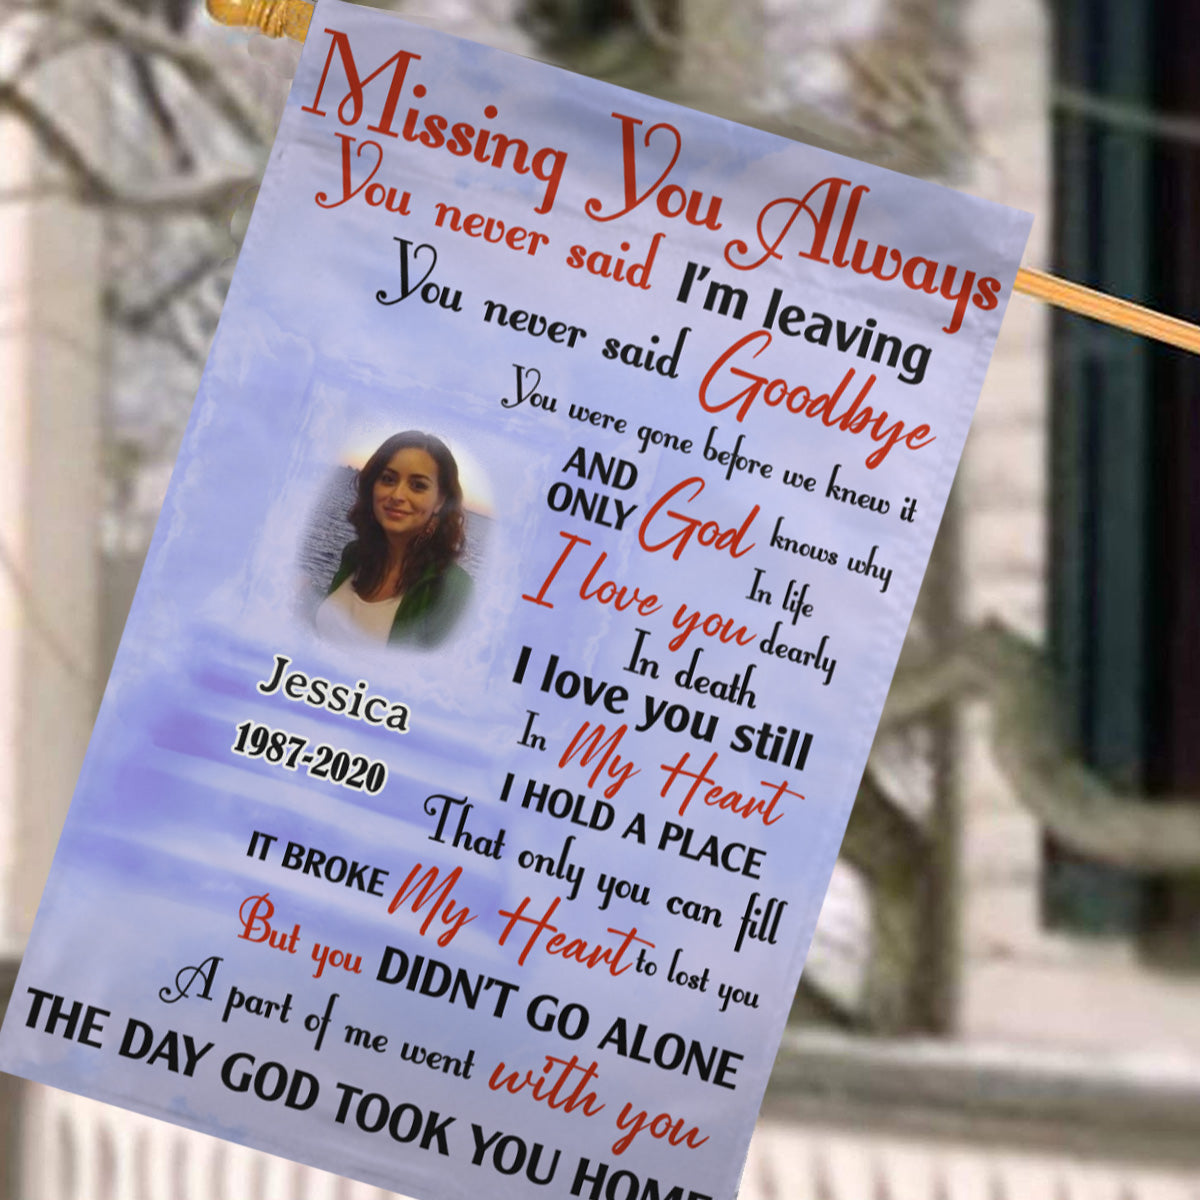 Missing You Always
You never said I'm leaving
You never said Goodbye
You were gone before we knew it
AND
ONLY God knows why
In life
I love you dearly
In death
I love you still
In My Heart
I HOLD A PLACE
That only you can fill
IT BROKE My Heart to lost you
But you DIDN'T GO ALONE
A part of me went with you
THE DAY GOD TOOK YOU HOME
Jessica
1987-2020